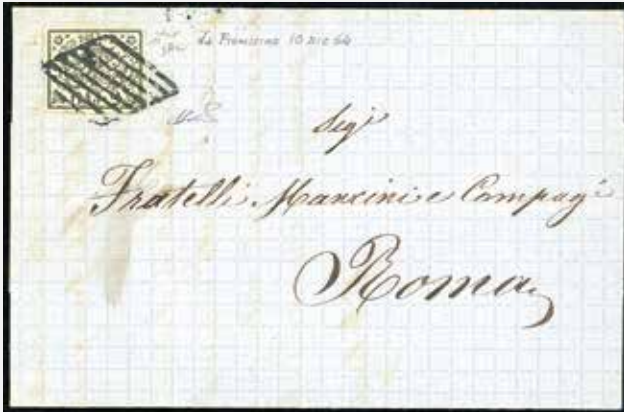 da Frosinone 10 DIC 64
Sigi
Fratelli Mancini e Compagi
Roma